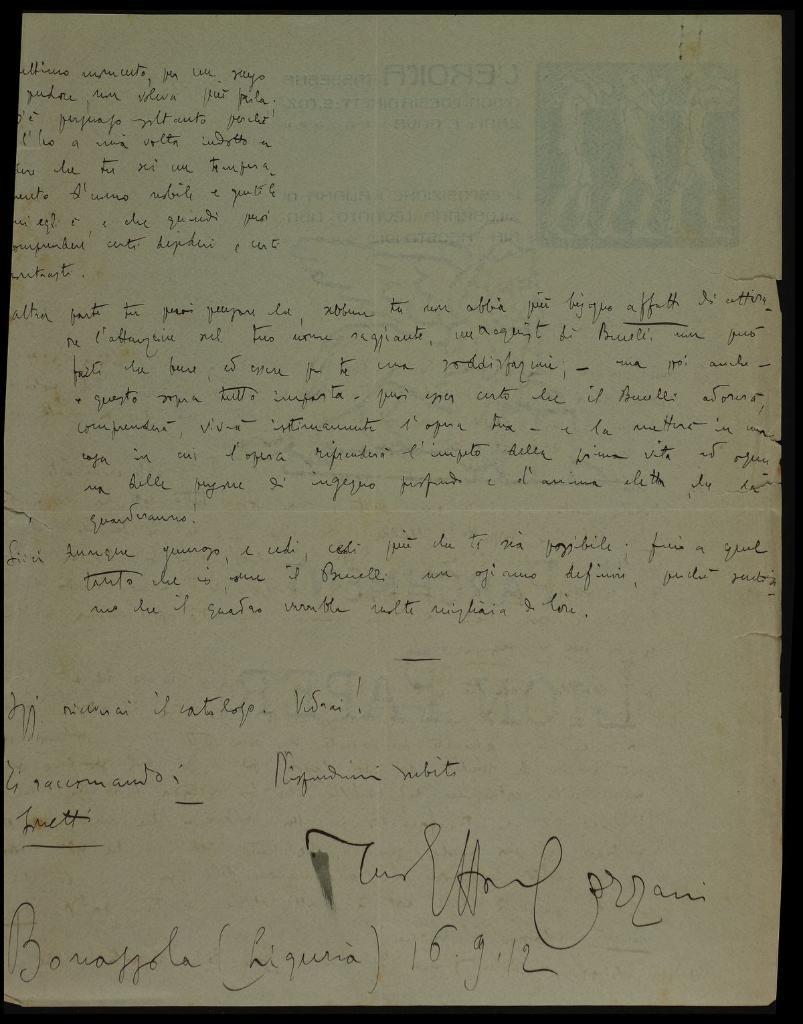 ultimo momento, per un senso
pudore, non voleva più farla.
s'è persuaso soltanto perché
l'ho a mia volta indotto a
che tu sei un tempera-
mento d'uomo nobile e gentile
egli è, e che quindi puoi
comprendere certi desideri e certi
contrasti.
altra parte tu puoi pensare che, sebbene tu non abbia più bisogno affatto di attira-
re l'attenzione sul tuo nome raggiante, un acquisto di Benelli non può
farti che bene, ed essere per te una soddisfazione; - ma poi anche -
e questo sopra tutto importa - puoi esser certo che il Benelli adorerà,
comprenderà, vivrà intimamente l'opera tua - e la metterà in una
casa in cui l'opera riprenderà l'impeto della prima vita ad ognu
na delle persone di ingegno profondo e d'anima eletta che la
guarderanno!
Sii dunque generoso, e cedi, cedi più che ti sia possibile; fino a quel
tanto che io, come il Benelli non osiamo definire, perché sentia-
mo che il quadro varrebbe molte migliaia di lire.
Oggi riceverai il catalogo. Vedrai!
Ti raccomando i
Rispondimi subito
Tuo Ettore Cozzani
Bonassola (Liguria) 16.9.12